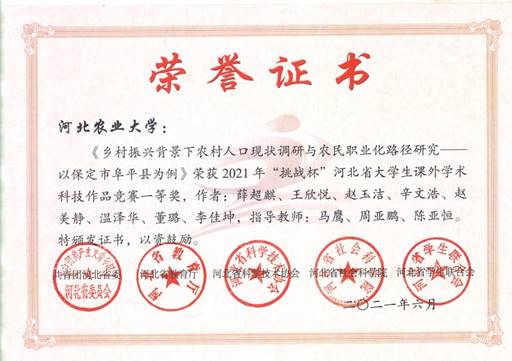 荣誉证书
河北农业大学：
《乡村振兴背景下农村人口现状调研与农民职业化路径研究——
以保定市阜平县为例》荣获2021年“挑战杯”河北省大学生课外学术
科技作品竞赛一等奖，作者：薛超麒、王欣悦、赵玉洁、辛文浩、赵
美静、温泽华、董璐、李佳坤，指导教师：马鹰、周亚鹏、陈亚恒。
特颁发证书，以资鼓励。
共青团河北省委 河北省教育厅 河北省科学技术协会 河北省社会科学院 河北省学生联合会
河北省委员会
二〇二一年六月